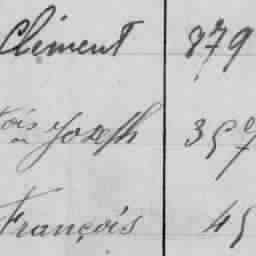 Clément 879
ois Joseph 35
François 45